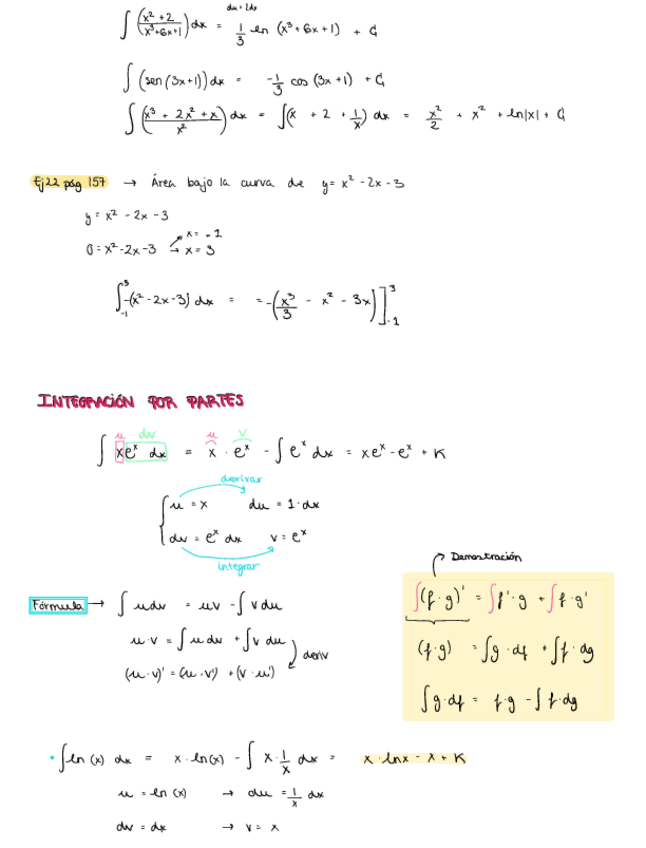 du = 2dx
∫ (x² + 2 / x³+6x+1) dx = 1/3 ln (x³ + 6x + 1) + C
∫ (sen (3x+1)) dx = -1/3 cos (3x + 1) + C
∫ (x³ + 2x² + x / x²) dx = ∫(x + 2 + 1/x) dx = x²/2 + x² + ln|x| + C
Ej22 pág 157 → Área bajo la curva de y = x² - 2x - 3
y = x² - 2x - 3
0 = x² - 2x - 3 x = -1
x = 3
∫₋₁³ -(x² - 2x - 3) dx = = -(x³/3 - x² - 3x)]₋₁³
INTEGRACIÓN POR PARTES
u dv u v
∫ xeˣ dx = x · eˣ - ∫ eˣ dx = xeˣ - eˣ + K
derivar
u = x du = 1 · dx
dv = eˣ dx v = eˣ
integrar
Demostración
Fórmula → ∫ u dv = uv - ∫ v du
u · v = ∫ u dv + ∫ v du
(u · v)' = (u · v') + (v · u') deriv
∫(f · g)' = ∫f' · g + ∫f · g'
(f · g) = ∫g · df + ∫f · dg
∫g · df = f · g - ∫f · dg
• ∫ln (x) dx = x · ln(x) - ∫ x · 1/x dx = x · lnx - x + K
u = ln (x) → du = 1/x dx
dv = dx → v = x